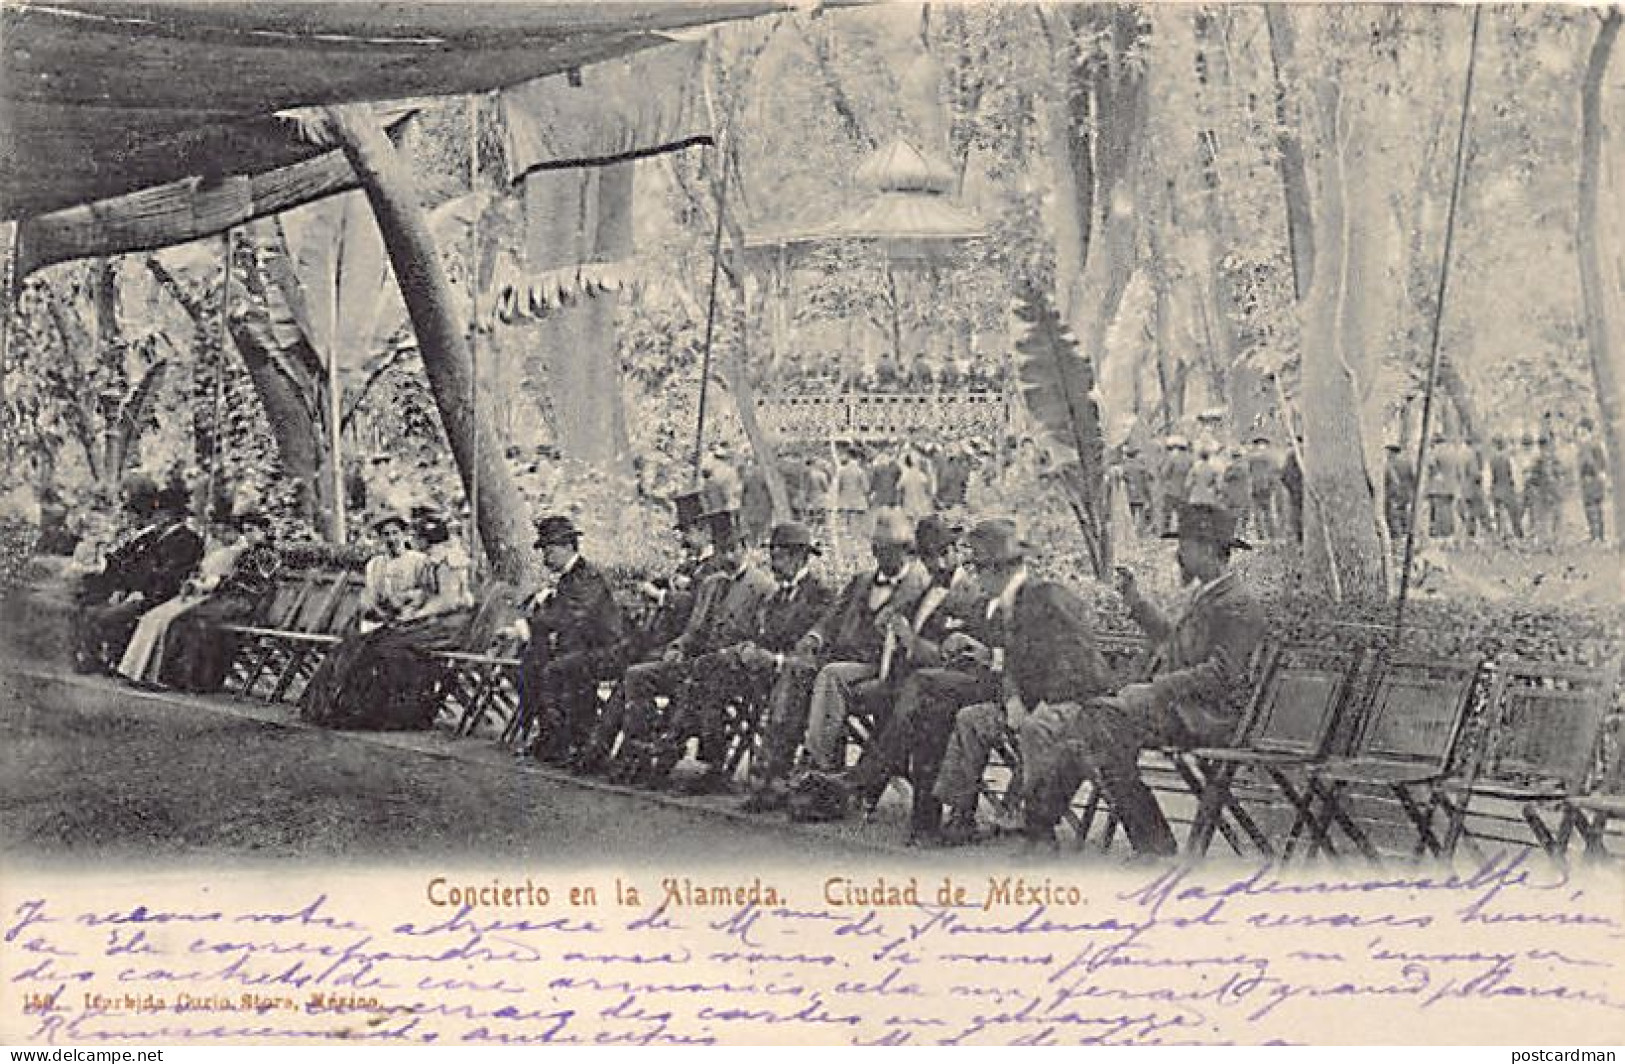 Concierto en la Alameda. Ciudad de México.
Mademoiselle,
Je reçois votre adresse de Mme de Fontenay et serais heureu-
se de correspondre avec vous. Si vous pouviez m'envoyer
des cachets de cire armoriés, cela me ferait grand plaisir
150. Iturbide Curio Store, México.
enverrais des cartes en échange.
Remerciements anticipés M. L. de
postcardman